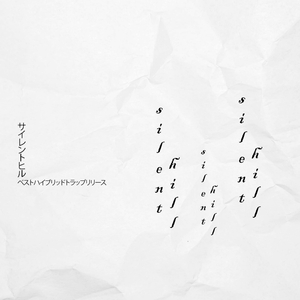 サイレントヒル
ベストハイブリッドトラップリリース
silent
hill
silent
hill
silent
hill